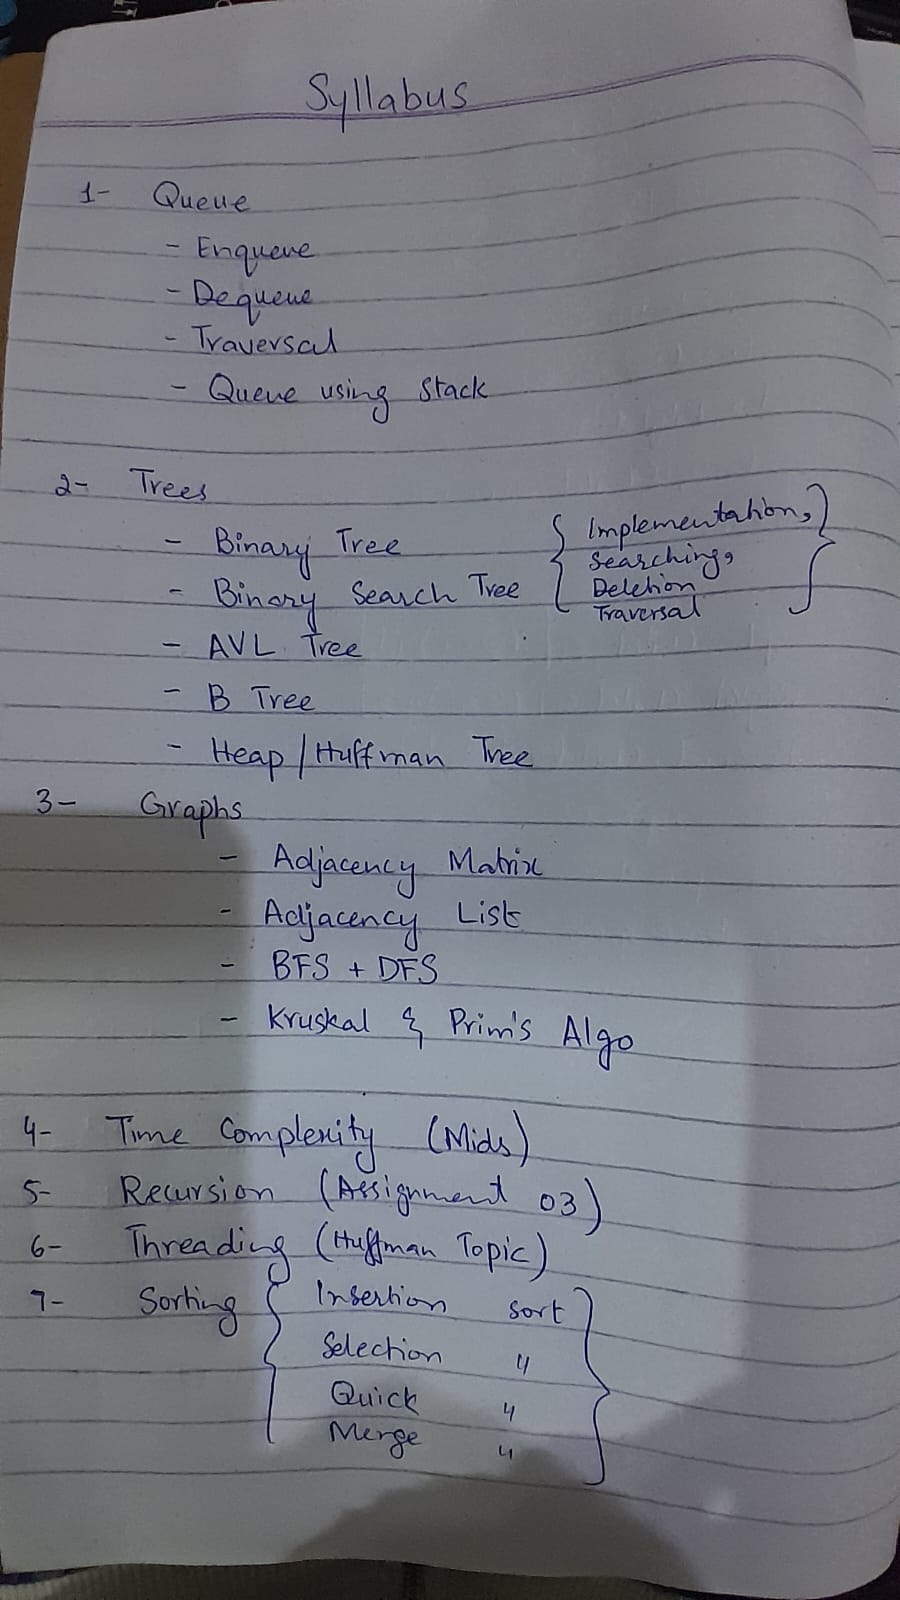 Syllabus
1- Queue
- Enqueue
- Dequeue
- Traversal
- Queue using Stack
2- Trees
- Binary Tree
- Binary Search Tree { Implementation, }
Searching,
Deletion
Traversal
- AVL Tree
- B Tree
- Heap / Huffman Tree
3- Graphs
- Adjacency Matrix
- Adjacency List
- BFS + DFS
- Kruskal & Prim's Algo
4- Time Complexity (Mids)
5- Recursion (Assignment 03)
6- Threading (Huffman Topic)
7- Sorting { Insertion sort }
Selection "
Quick "
Merge "